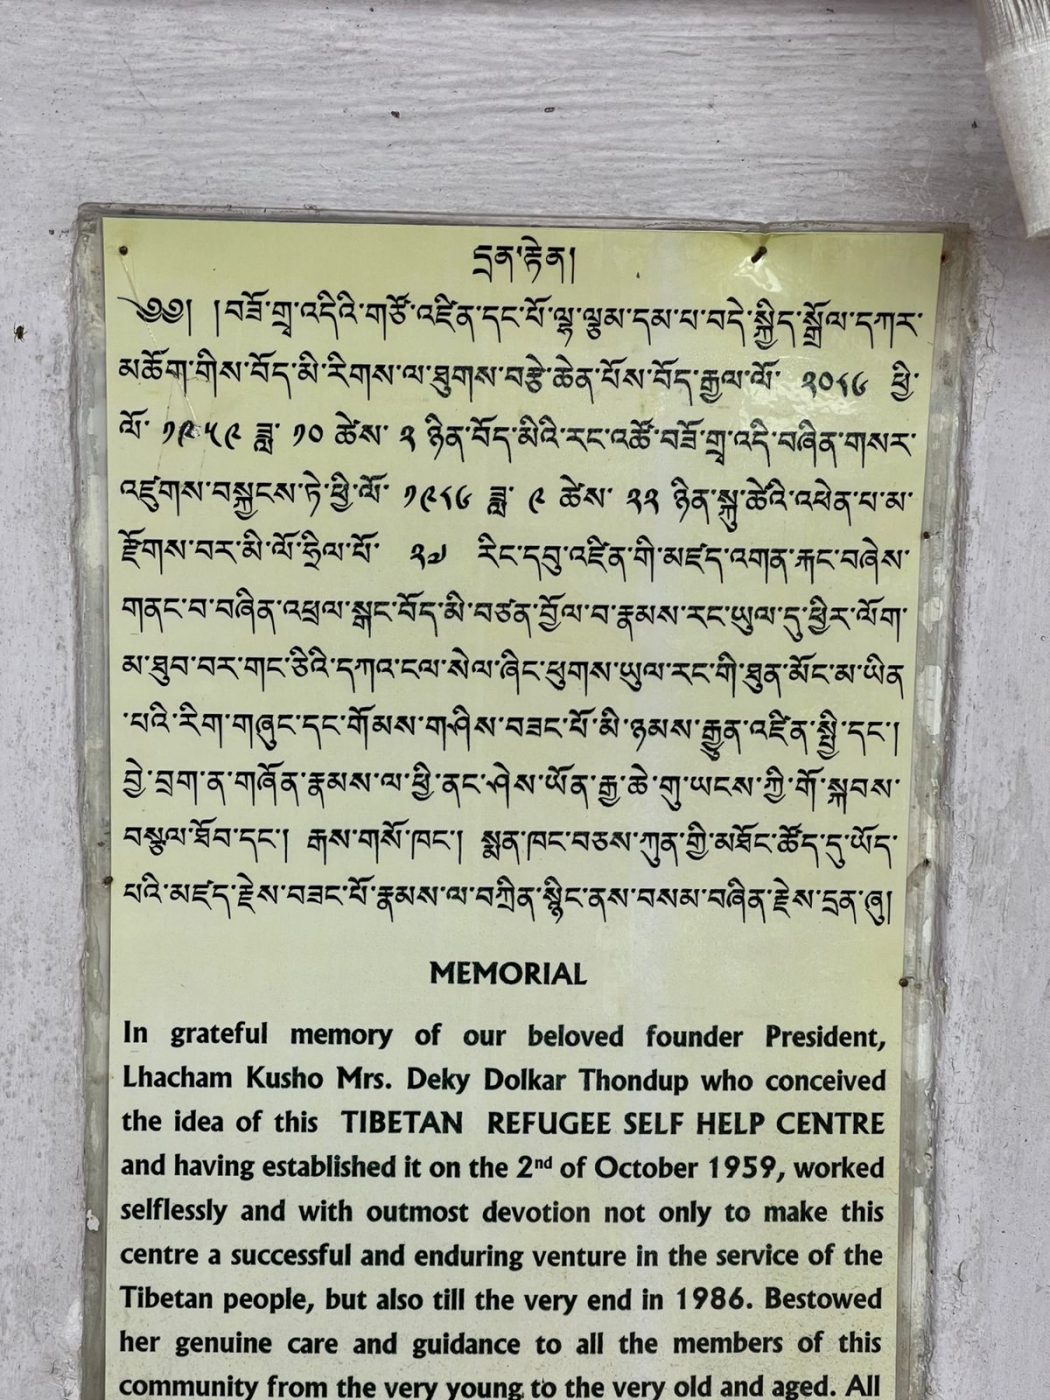 དྲན་རྟེན།
༄༅། །བཟོ་གྲྭ་འདིའི་གཙོ་འཛིན་དང་པོ་ལྷ་ལྕམ་དམ་པ་བདེ་སྐྱིད་སྒྲོལ་དཀར་
མཆོག་གིས་བོད་མི་རིགས་ལ་ཐུགས་བརྩེ་ཆེན་པོས་བོད་རྒྱལ་ལོ་ ༢༠༨༦ ཕྱི་
ལོ་ ༡༩༥༩ ཟླ་ ༡༠ ཚེས་ ༢ ཉིན་བོད་མིའི་རང་འཚོ་བཟོ་གྲྭ་འདི་བཞིན་གསར་
འཛུགས་བསྐྱངས་ཏེ་ཕྱི་ལོ་ ༡༩༨༦ ཟླ་ ༩ ཚེས་ ༢༢ ཉིན་སྐུ་ཚེའི་འཕེན་པ་མ་
རྫོགས་བར་མི་ལོ་ཧྲིལ་པོ་ ༢༧ རིང་དབུ་འཛིན་གི་མཛད་འགན་རྐང་བཞེས་
གནང་བ་བཞིན་འཕྲལ་སྒང་བོད་མི་བཙན་བྱོལ་བ་རྣམས་རང་ཡུལ་དུ་ཕྱིར་ལོག་
མ་ཐུབ་བར་གང་ཅིའི་དཀའ་ངལ་སེལ་ཞིང་ཕུགས་ཡུལ་རང་གི་ཐུན་མོང་མ་ཡིན
་པའི་རིག་གཞུང་དང་གོམས་གཤིས་བཟང་པོ་མི་ཉམས་རྒྱུན་འཛིན་སྤྱི་དང་།
བྱེ་བྲག་ན་གཞོན་རྣམས་ལ་ཕྱི་ནང་ཤེས་ཡོན་རྒྱ་ཆེ་གུ་ཡངས་ཀྱི་གོ་སྐབས་
བསྩལ་ཐོབ་དང་། རྒས་གསོ་ཁང་། སྨན་ཁང་བཅས་ཀུན་གྱི་མཐོང་ཚོད་དུ་ཡོད་
པའི་མཛད་རྗེས་བཟང་པོ་རྣམས་ལ་བཀྲིན་སྙིང་ནས་བསམ་བཞིན་རྗེས་དྲན་ཞུ།
MEMORIAL
In grateful memory of our beloved founder President,
Lhacham Kusho Mrs. Deky Dolkar Thondup who conceived
the idea of this TIBETAN REFUGEE SELF HELP CENTRE
and having established it on the 2nd of October 1959, worked
selflessly and with outmost devotion not only to make this
centre a successful and enduring venture in the service of the
Tibetan people, but also till the very end in 1986. Bestowed
her genuine care and guidance to all the members of this
community from the very young to the very old and aged. All